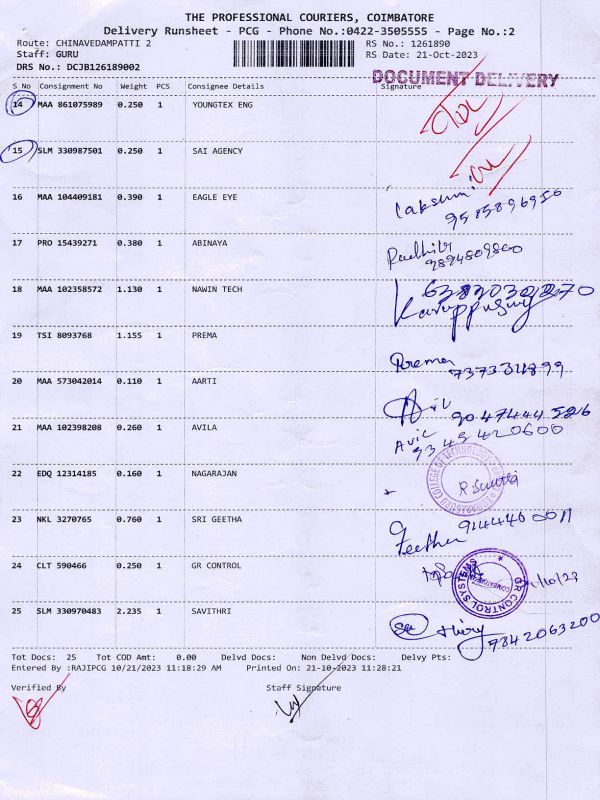 THE PROFESSIONAL COURIERS, COIMBATORE
Delivery Runsheet - PCG - Phone No.:0422-3505555 - Page No.:2
Route: CHINAVEDAMPATTI 2 RS No.: 1261890
Staff: GURU RS Date: 21-Oct-2023
DRS No.: DCJB126189002
DOCUMENT DELIVERY
S No Consignment No Weight PCS Consignee Details Signature
14 MAA 861075989 0.250 1 YOUNGTEX ENG
15 SLM 330987501 0.250 1 SAI AGENCY
16 MAA 104409181 0.390 1 EAGLE EYE Lakshmi
9585896956
17 PRO 15439271 0.380 1 ABINAYA
9894809800
18 MAA 102358572 1.130 1 NAWIN TECH
Karuppusamy
19 TSI 8093768 1.155 1 PREMA Prema
20 MAA 573042014 0.110 1 AARTI
9047444526
21 MAA 102398208 0.260 1 AVILA
22 EDQ 12314185 0.160 1 NAGARAJAN
23 NKL 3270765 0.760 1 SRI GEETHA
Geetha
24 CLT 590466 0.250 1 GR CONTROL
GR CONTROL SYSTEMS
COIMBATORE
25 SLM 330970483 2.235 1 SAVITHRI
9842063200
Tot Docs: 25 Tot COD Amt: 0.00 Delvd Docs: Non Delvd Docs: Delvy Pts:
Entered By :RAJIPCG 10/21/2023 11:18:29 AM Printed On: 21-10-2023 11:28:21
Verified By Staff Signature